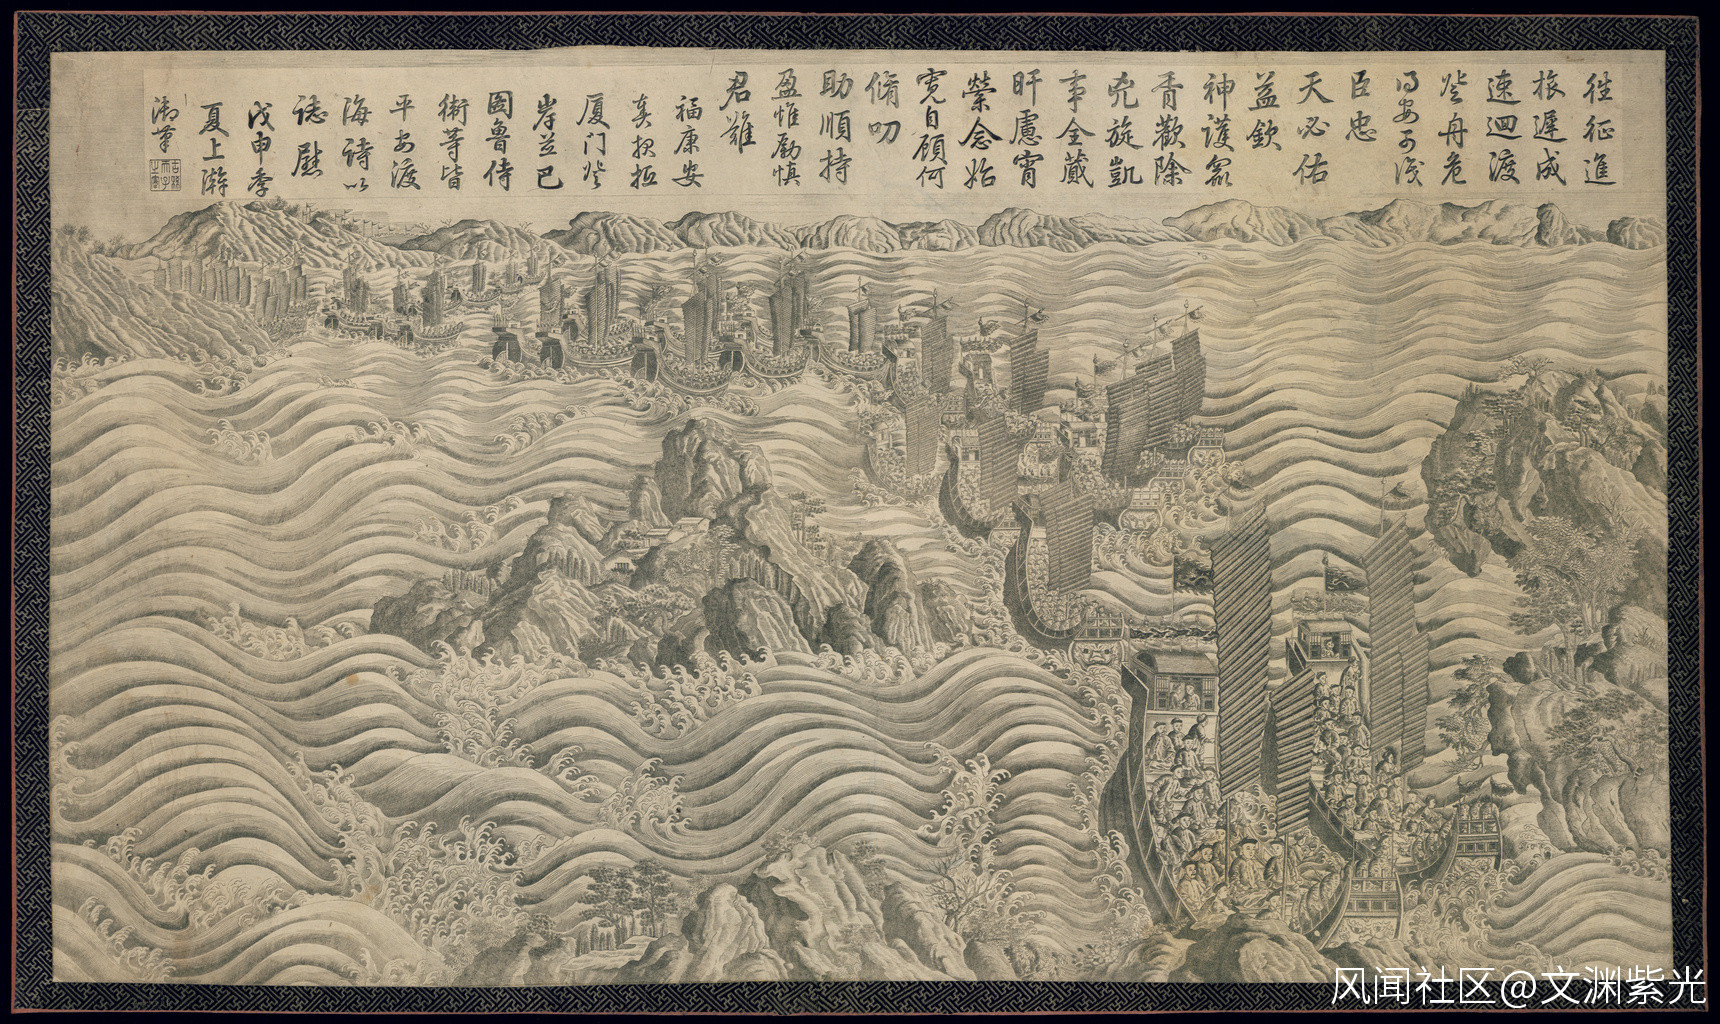 往征進
旅遲成
速迴渡
登舟危
得安可識
臣忠
天必佑
益欽
神護眾
胥歡除
兇旋凱
事全蕆
旰慮宵
縈念始
寬自顧何
脩叨
助順持
盈惟勵慎
君難
福康安
奏報抵
厦门登
岸並巴
圖魯侍
衛等皆
平安渡
海詩以
誌慰
戊申季
夏上澣
御筆
古稀天子之寶
风闻社区@文渊紫光